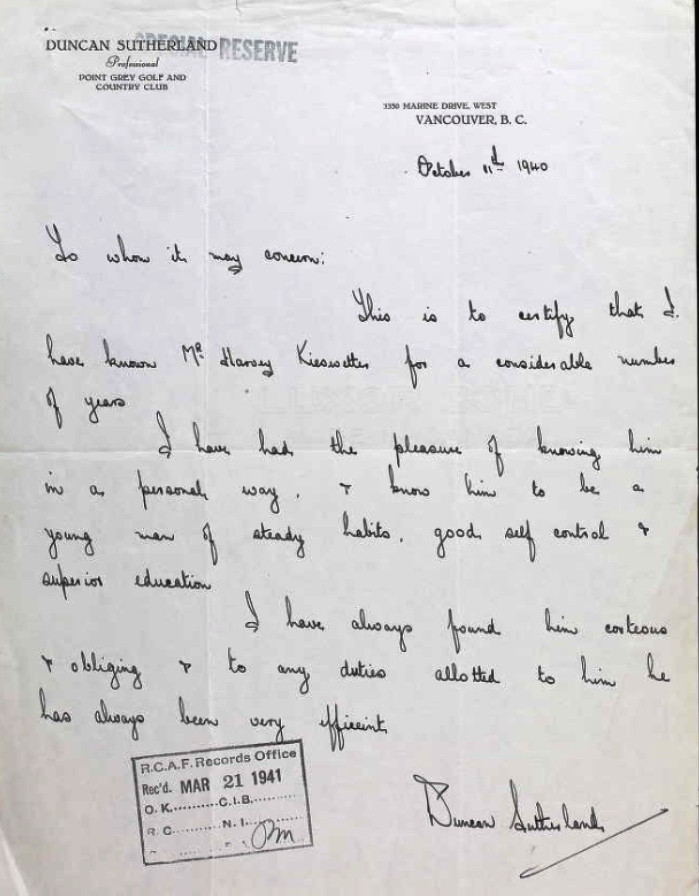 DUNCAN SUTHERLAND
SPECIAL RESERVE
Professional
POINT GREY GOLF AND
COUNTRY CLUB
3350 MARINE DRIVE, WEST
VANCOUVER, B. C.
October 11th 1940
To whom it may concern:
This is to certify that I
have known Mr Harvey Kieswetter for a considerable number
of years
I have had the pleasure of knowing him
in a personal way, & know him to be a
young man of steady habits, good self control &
superior education
I have always found him corteous
& obliging & to any duties allotted to him he
has always been very efficient
R.C.A.F. Records Office
Rec'd. MAR 21 1941
O. K..........C.I.B...........
R. C..........N. I.....
Duncan Sutherland